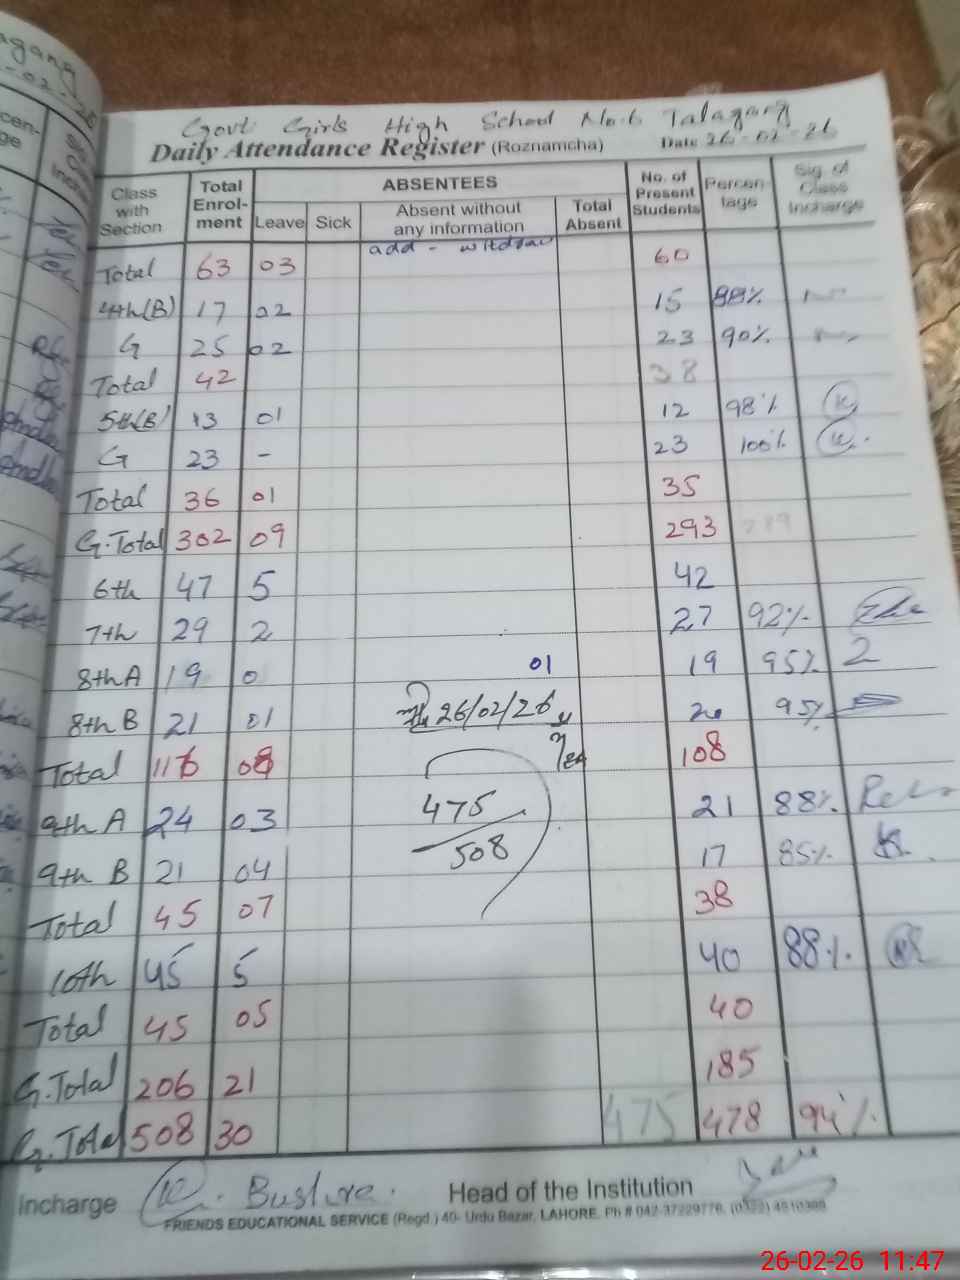 Govt Girls High School No.6 Talagang
Daily Attendance Register (Roznamcha) Date 26-02-26
Class with Section Total Enrol-ment ABSENTEES Leave Sick Absent without any information Total Absent No. of Present Students Percen-tage Sig. of Class Incharge
add - witdraw
Total 63 03 60
4th(B) 17 02 15 88%
G 25 02 23 90%
Total 42 38
5th(B) 13 01 12 98%
G 23 - 23 100%
Total 36 01 35
G.Total 302 09 293 289
6th 47 5 42
7th 29 2 27 92%
8th A 19 0 01 19 95%
8th B 21 01 26/02/26 20 95%
Total 116 08 108
9th A 24 03 475 21 88%
9th B 21 04 508 17 85%
Total 45 07 38
10th 45 5 40 88%
Total 45 05 40
G.Total 206 21 185
G.Total 508 30 475 478 94%
Incharge Bushra. Head of the Institution
FRIENDS EDUCATIONAL SERVICE (Regd.) 40- Urdu Bazar, LAHORE. Ph # 042-37229776, (0322)
26-02-26 11:47